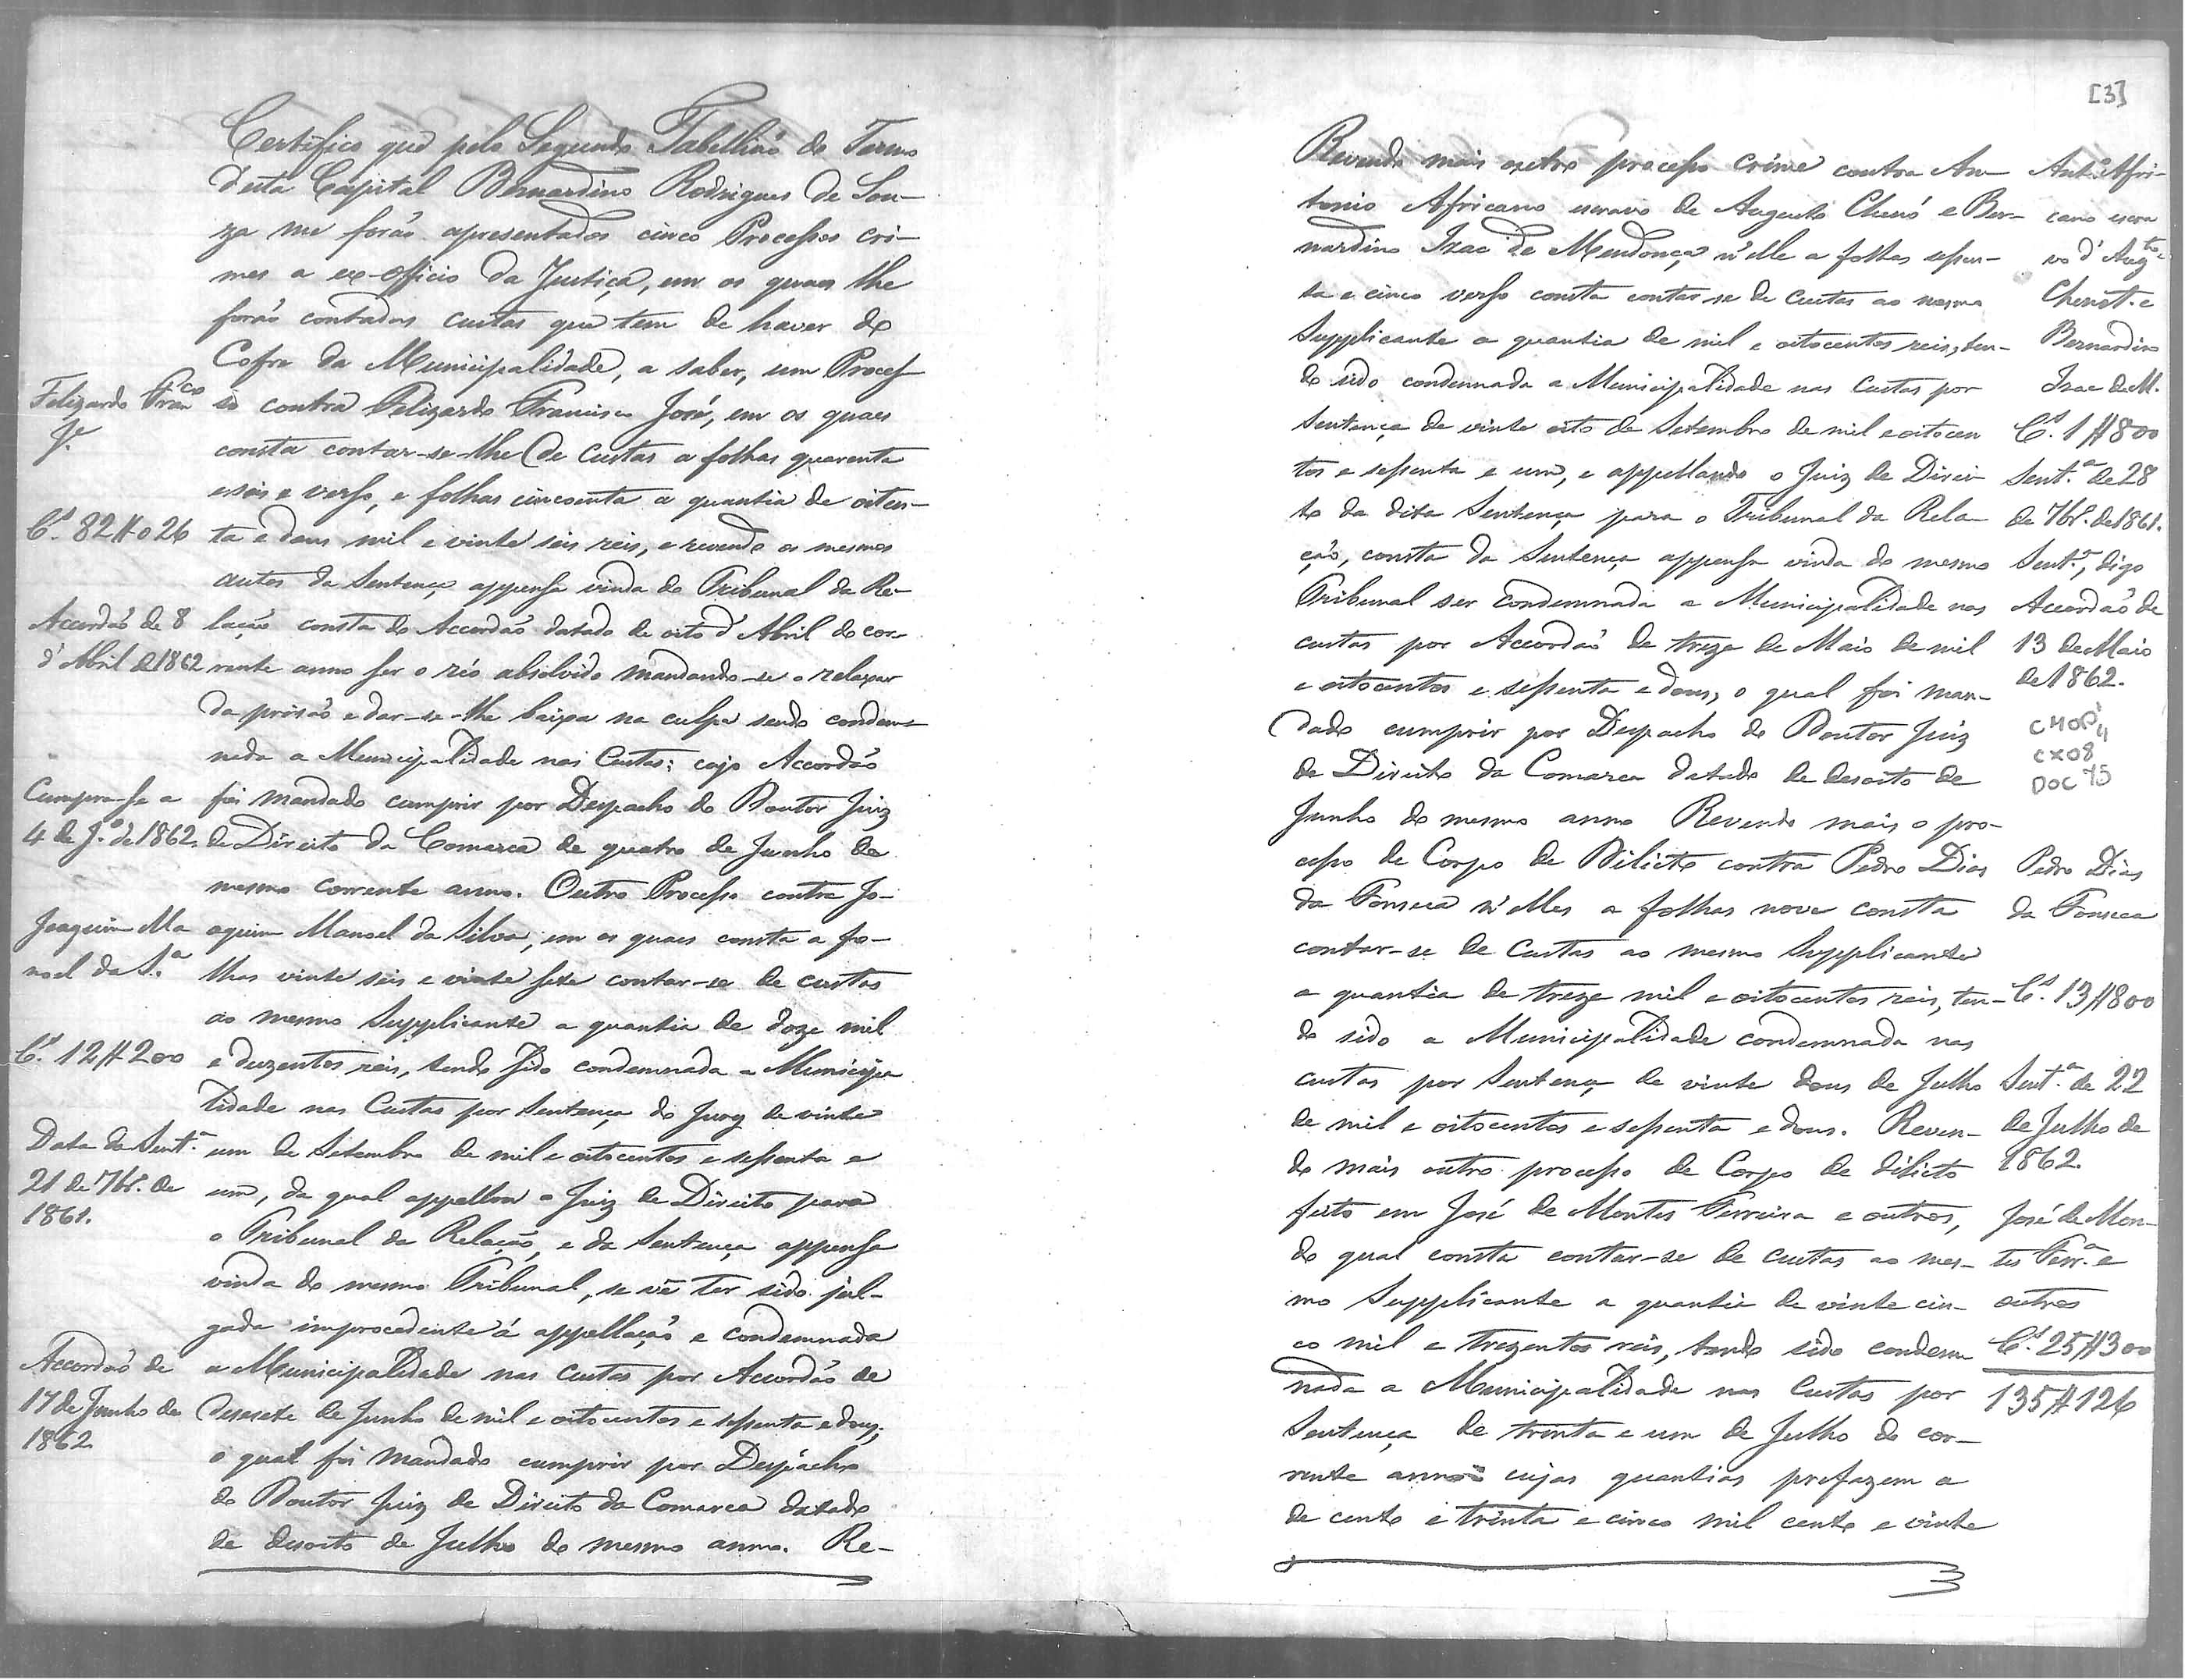 Certifico que pelo Segundo Tabelliaõ do Termo
desta Capital Bernardino Rodrigues de Sou-
za me foraõ apresentados cinco Processos cri-
mes a ex-officio da Justiça, em os quaes lhe
foraõ contados custas que tem de haver do
Cofre da Municipalidade, a saber, um Proces-
so contra Felizardo Francisco José, em os quaes
consta contar-se-lhe de custas a folhas quarenta
e seis e verso, e folhas cincoenta a quantia de oiten-
ta e dous mil e vinte seis reis, e revendo os mesmos
autos da Sentença appensa vinda do Tribunal da Re-
laçaõ consta do Accordaõ datado de oito d'Abril do cor-
rente anno ser o réo absolvido mandando-se o relaxar
da prisaõ e dar-se-lhe baixa na culpa sendo condem-
nada a Municipalidade nas Custas; cujo Accordaõ
foi mandado cumprir por Despacho do Doutor Juiz
de Direito da Comarca de quatro de Junho do
mesmo corrente anno. Outro Processo contra Jo-
aquim Manoel da Silva, em os quaes consta a fo-
lhas vinte seis e vinte sete contar-se de custas
ao mesmo Supplicante a quantia de doze mil
e duzentos reis, sendo sido condemnada a Municipa
lidade nas Custas por Sentença do Jury de vinte
um de Setembro de mil e oitocentos e sessenta e
um, da qual appellou o Juiz de Direito para
o Tribunal da Relaçaõ, e da Sentença appensa
vinda do mesmo Tribunal, se vê ter sido jul-
gada improcedente á appellaçaõ e condemnada
a Municipalidade nas Custas por Accordaõ de
desesete de Junho de mil e oitocentos e sessenta e dous,
o qual foi mandado cumprir por Despacho
do Doutor Juiz de Direito da Comarca datado
de desoito de Julho do mesmo anno. Re-
Felizardo Franco
Je.
Cs. 82#026
Accordaõ de 8
d'Abril de 1862
Cumpra-se a
4 de J.o de 1862.
Joaquim Ma
noel da S.a
Cs. 12#200
Data da Sent.a
21 de 7br. de
1861.
Accordaõ de
17 de Junho de
1862.
[3]
Revendo mais outro processo crime contra An-
tonio Africano escravo de Augusto Chenó e Ber-
nardino Izac de Mendonça, n'elle a folhas sessen-
ta e cinco verso consta contar-se de custas ao mesmo
Supplicante a quantia de mil e oitocentos reis, ten-
do sido condemnada a Municipalidade nas Custas por
sentença de vinte oito de Setembro de mil e oitocen
tos e sessenta e um, e appellando o Juiz de Direi
to da dita Sentença para o Tribunal da Rela-
çaõ, consta da Sentença appensa vinda do mesmo
Tribunal ser condemnada a Municipalidade nas
custas por Accordaõ de treze de Maio de mil
e oitocentos e sessenta e dous, o qual foi man-
dado cumprir por Despacho do Doutor Juiz
de Direito da Comarca datado de desoito de
Junho do mesmo anno Revendo mais o pro-
cesso de Corpo de Dilicto contra Pedro Dias
da Fonseca n'elles a folhas nove consta
contar-se de Custas ao mesmo Supplicante
a quantia de treze mil e oitocentos reis, ten-
do sido a Municipalidade condemnada nas
custas por Sentença de vinte dous de Julho
de mil e oitocentos e sessenta e dous. Reven-
do mais outro processo de Corpo de dilicto
feito em José de Montes Ferreira e outros,
do qual consta contar-se de custas ao mes-
mo Supplicante a quantia de vinte cin-
co mil e trezentos reis, tendo sido condem
nada a Municipalidade nas Custas por
Sentença de trinta e um de Julho do cor-
rente anno cujas quantias prefazem a
de cento e trinta e cinco mil cento e vinte
Ant.o Afri-
cano escra
vo d'Augto.
Chenot. e
Bernardino
Izac de M.
Cs. 1#800
Sent.a de 28
de 7br. de 1861.
Sent.a, digo
Accordaõ de
13 de Maio
de 1862.
CMOP
CX08
DOC 75
Pedro Dias
da Fonseca
Cs. 13#800
Sent.a de 22
de Julho de
1862.
José de Mon-
tes Ferr.a e
outros
Cs. 25#300
135#126